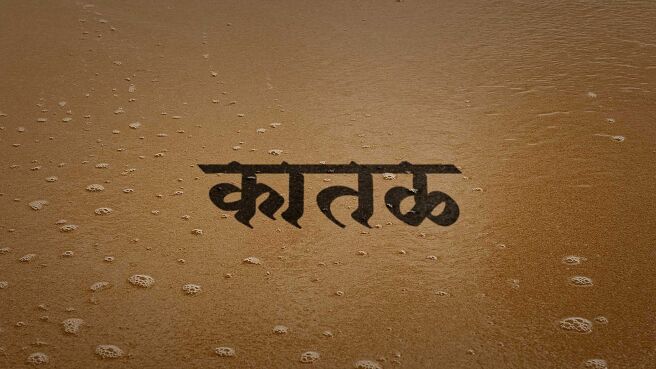 कातळ